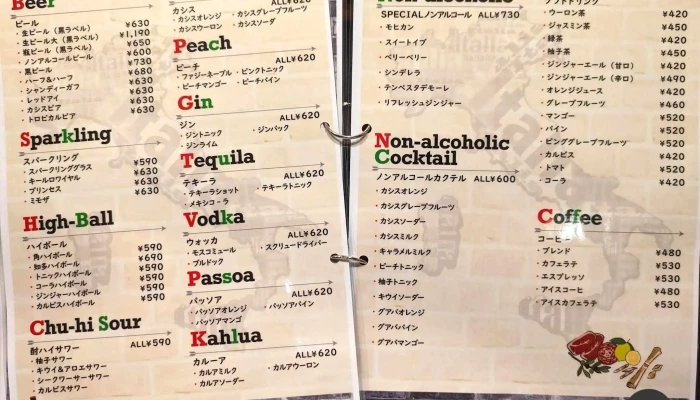 Beer
ビール ¥630
・生ビール（黒ラベル） ¥1,190
・生ビール大（黒ラベル） ¥650
・瓶ビール（黒ラベル） ¥600
・ノンアルコールビール ¥730
・黒ビール ¥680
・ハーフ&ハーフ ¥630
・シャンディーガフ ¥630
・レッドアイ ¥630
・カシスビア ¥630
・トロピカルビア
Sparkling
スパークリング ¥590
・スパークリンググラス ¥630
・キールロワイヤル ¥630
・プリンセス ¥630
・ミモザ
High-Ball
ハイボール ¥590
・角ハイボール ¥690
・知多ハイボール ¥590
・トニックハイボール ¥590
・コーラハイボール ¥590
・ジンジャーハイボール ¥590
・カルピスハイボール
Chu-hi Sour
酎ハイサワー ALL¥590
・柚子サワー
・キウイ&アロエサワー
・シークワーサーサワー
・カルピスサワー
カシス ALL¥620
・カシスオレンジ ・カシスグレープフルーツ
・カシスウーロン ・カシスソーダ
Peach
ピーチ ALL¥620
・ファジーネーブル ・ピンクトニック
・ピーチマンゴー ・ピーチパイン
Gin
ジン ALL¥620
・ジントニック ・ジンバック
・ジンライム
Tequila
テキーラ ALL¥620
・テキーラショット ・テキーラトニック
・メキシコ－ラ
Vodka
ウォッカ ALL¥620
・モスコミュール ・スクリュードライバー
・ブルドック
Passoa
パッソア ALL¥620
・パッソアオレンジ ・パッソアパイン
・パッソアマンゴ
Kahlua
カルーア ALL¥620
・カルアミルク ・カルアウーロン
・カルアソーダ
Non-alcoholic
SPECIALノンアルコール ALL¥730
・モヒカン
・スイートイブ
・ベリーベリー
・シンデレラ
・テンペスタデモーレ
・リフレッシュジンジャー
Non-alcoholic
Cocktail
ノンアルコールカクテル ALL¥600
・カシスオレンジ
・カシスグレープフルーツ
・カシスソーダー
・カシスミルク
・キャラメルミルク
・ピーチトニック
・柚子トニック
・キウイソーダー
・グアバオレンジ
・グアバパイン
・グアバマンゴー
ソフトドリンク
・ウーロン茶 ¥420
・ジャスミン茶 ¥450
・緑茶 ¥420
・柚子茶 ¥450
・ジンジャーエール（甘口） ¥420
・ジンジャーエール（辛口） ¥490
・オレンジジュース ¥420
・グレープフルーツ ¥460
・マンゴー ¥520
・パイン ¥520
・ピンググレープフルーツ ¥520
・カルピス ¥420
・トマト ¥520
・コーラ ¥420
Coffee
コーヒー
・ブレンド ¥480
・カフェラテ ¥530
・エスプレッソ ¥530
・アイスコーヒ ¥480
・アイスカフェラテ ¥530